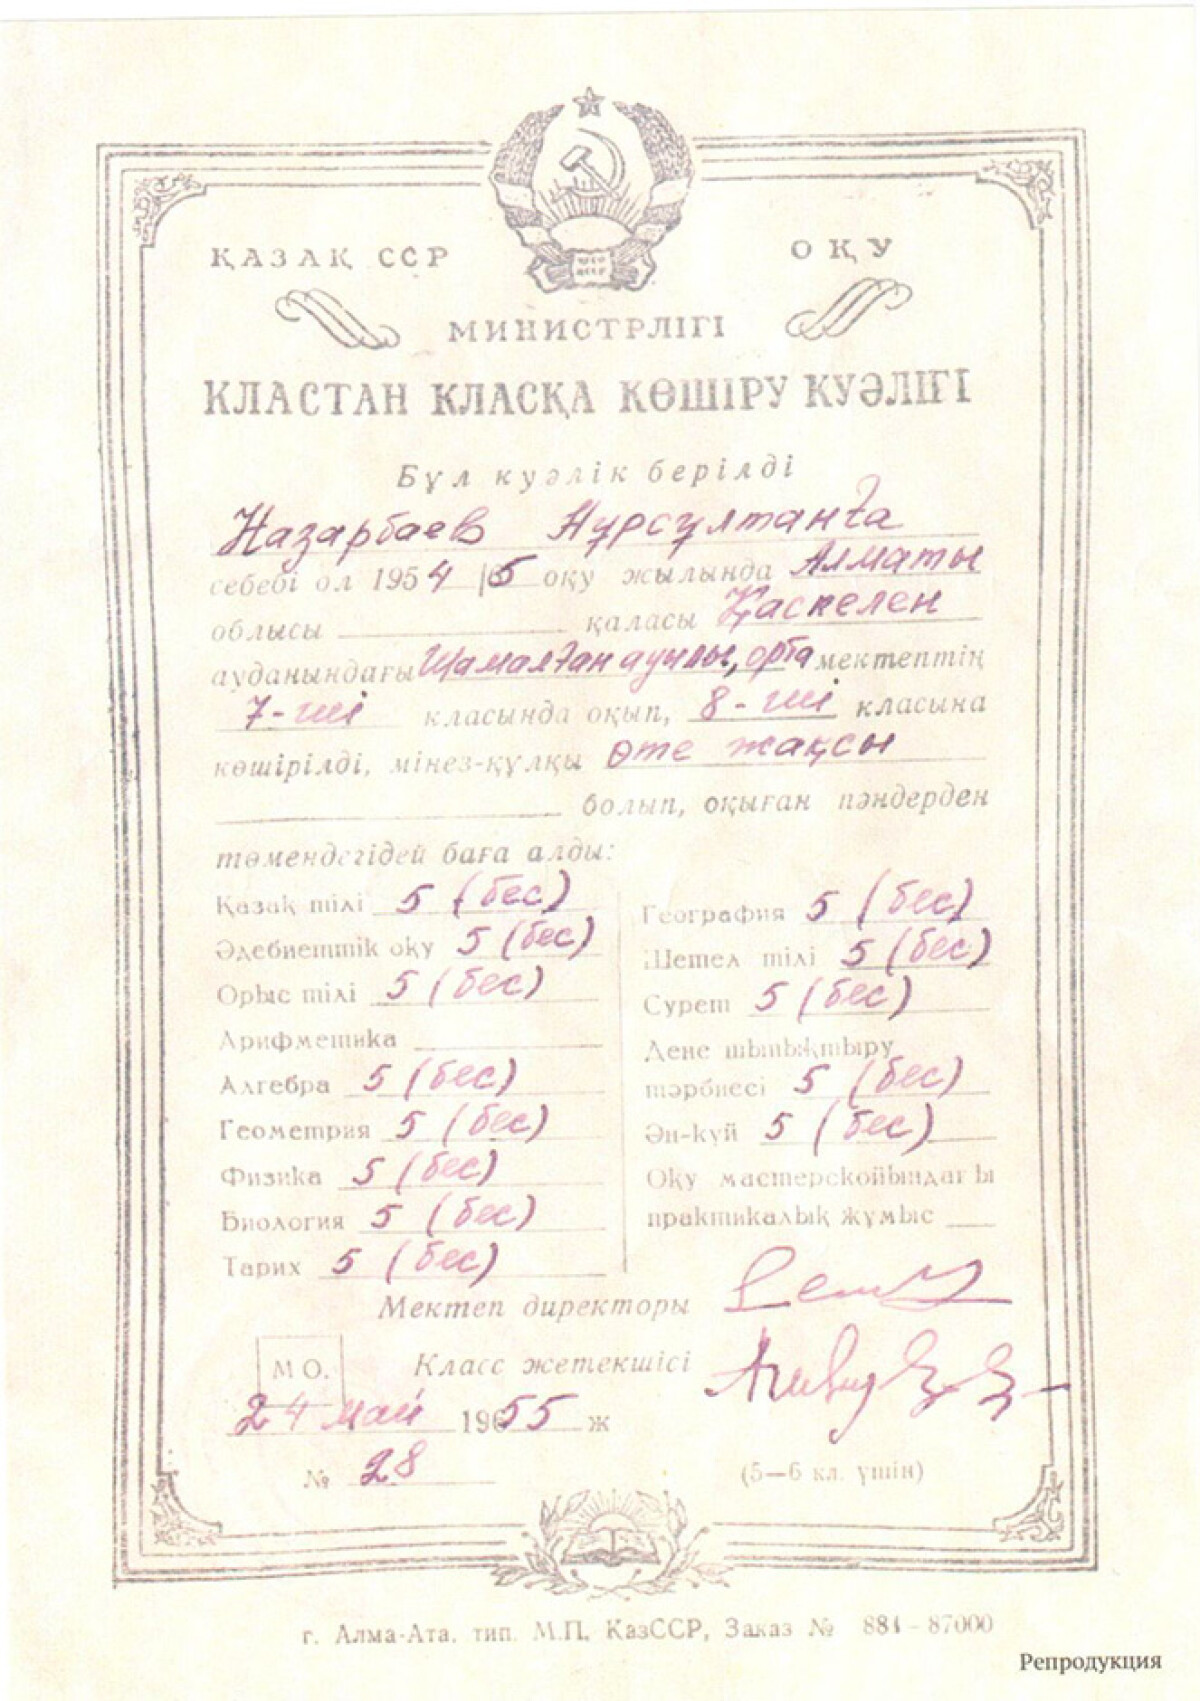 ҚАЗАҚ ССР ОҚУ
МИНИСТРЛІГІ
КЛАСТАН КЛАСҚА КӨШІРУ КУӘЛІГІ
Бұл куәлік берілді
Назарбаев Нұрсұлтанға
себебі ол 1954/5 оқу жылында Алматы
облысы ______ қаласы Қаскелен
ауданындағы Шамалған ауылы, орта мектептің
7-ші класында оқып, 8-ші класына
көшірілді, мінез-құлқы өте жақсы
______ болып, оқыған пәндерден
төмендегідей баға алды:
Қазақ тілі 5 (бес)
Әдебиеттік оқу 5 (бес)
Орыс тілі 5 (бес)
Арифметика ______
Алгебра 5 (бес)
Геометрия 5 (бес)
Физика 5 (бес)
Биология 5 (бес)
Тарих 5 (бес)
География 5 (бес)
Шетел тілі 5 (бес)
Сурет 5 (бес)
Дене шынықтыру
тәрбиесі 5 (бес)
Ән-күй 5 (бес)
Оқу мастерскойындағы
практикалық жұмыс ___
Мектеп директоры
Класс жетекшісі
М О.
24 май 1955 ж
№ 28
(5—6 кл. үшін)
г. Алма-Ата. тип. М.П. КазССР, Заказ № 884-87000
Репродукция